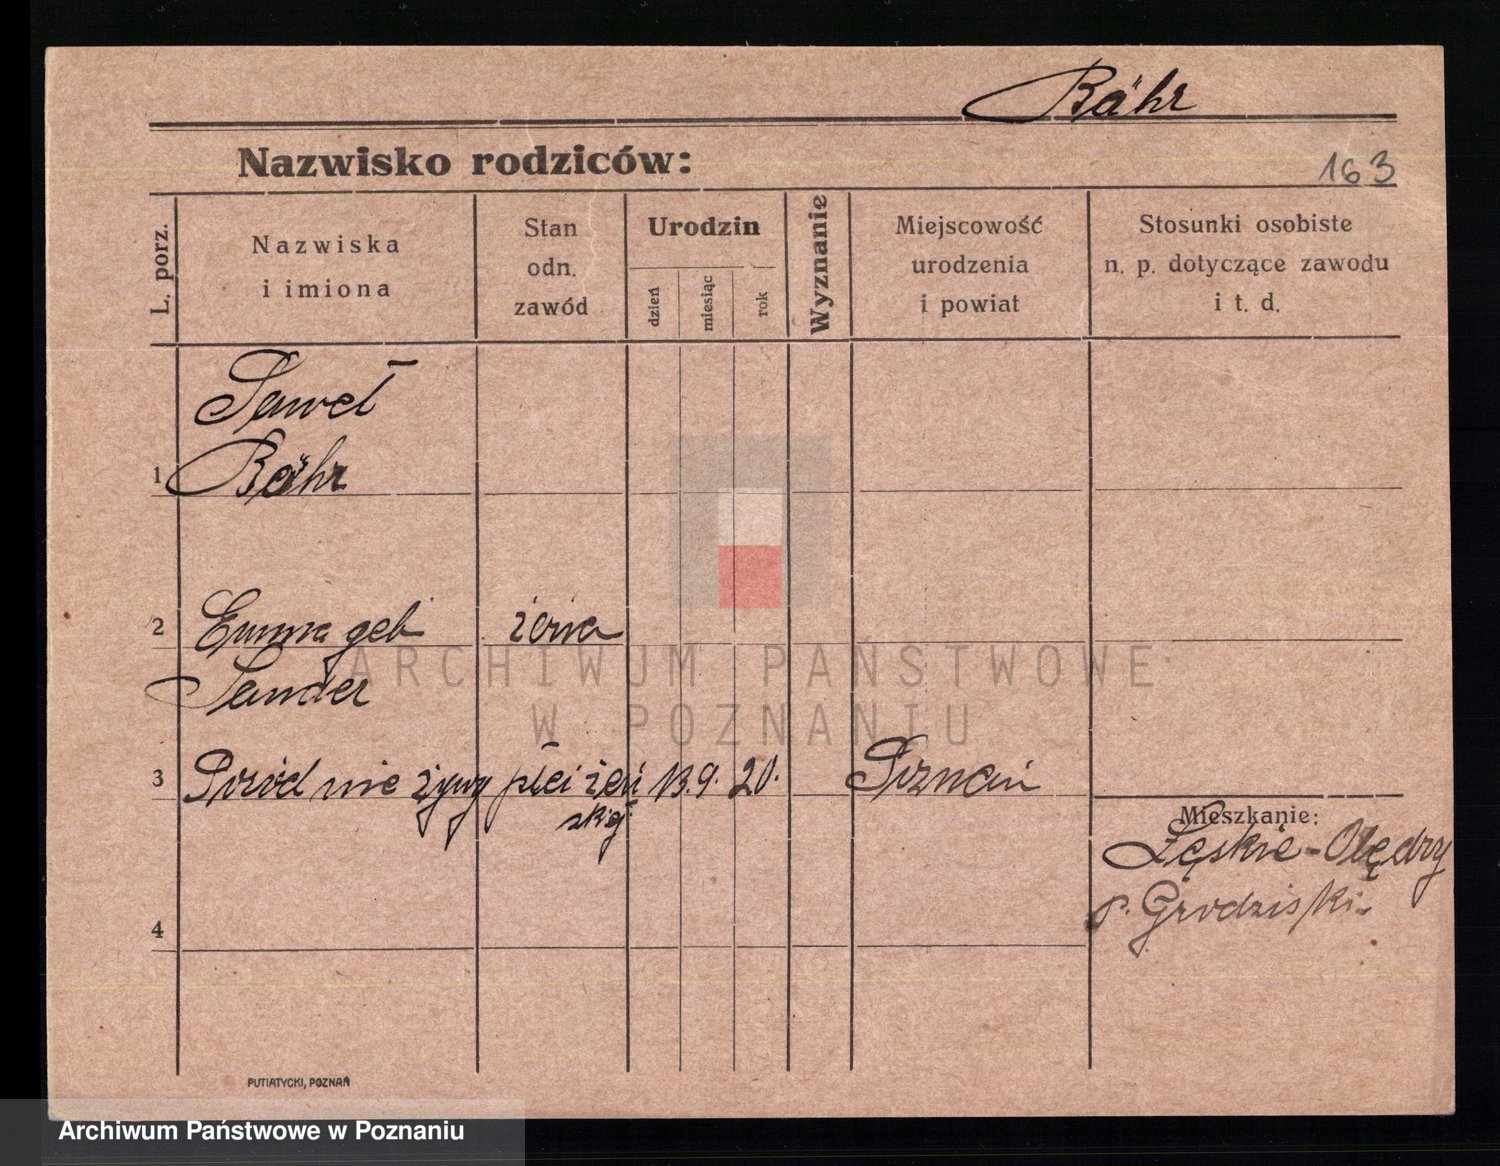 Bähr
Nazwisko rodziców:
163
L. porz.
Nazwiska
i imiona
Stan
odn.
zawód
Urodzin
dzień
miesiąc
rok
Wyznanie
Miejscowość
urodzenia
i powiat
Stosunki osobiste
n. p. dotyczące zawodu
i t. d.
Paweł
1 Bähr
2 Emma geb żona
Sander
3 Poród nie żywy płci żeń 13. 9. 20. Poznań
skiej
Mieszkanie:
Łęskie-Olędry
p. Grodziski
4
PUTIATYCKI, POZNAŃ
ARCHIWUM PAŃSTWOWE
W POZNANIU
Archiwum Państwowe w Poznaniu